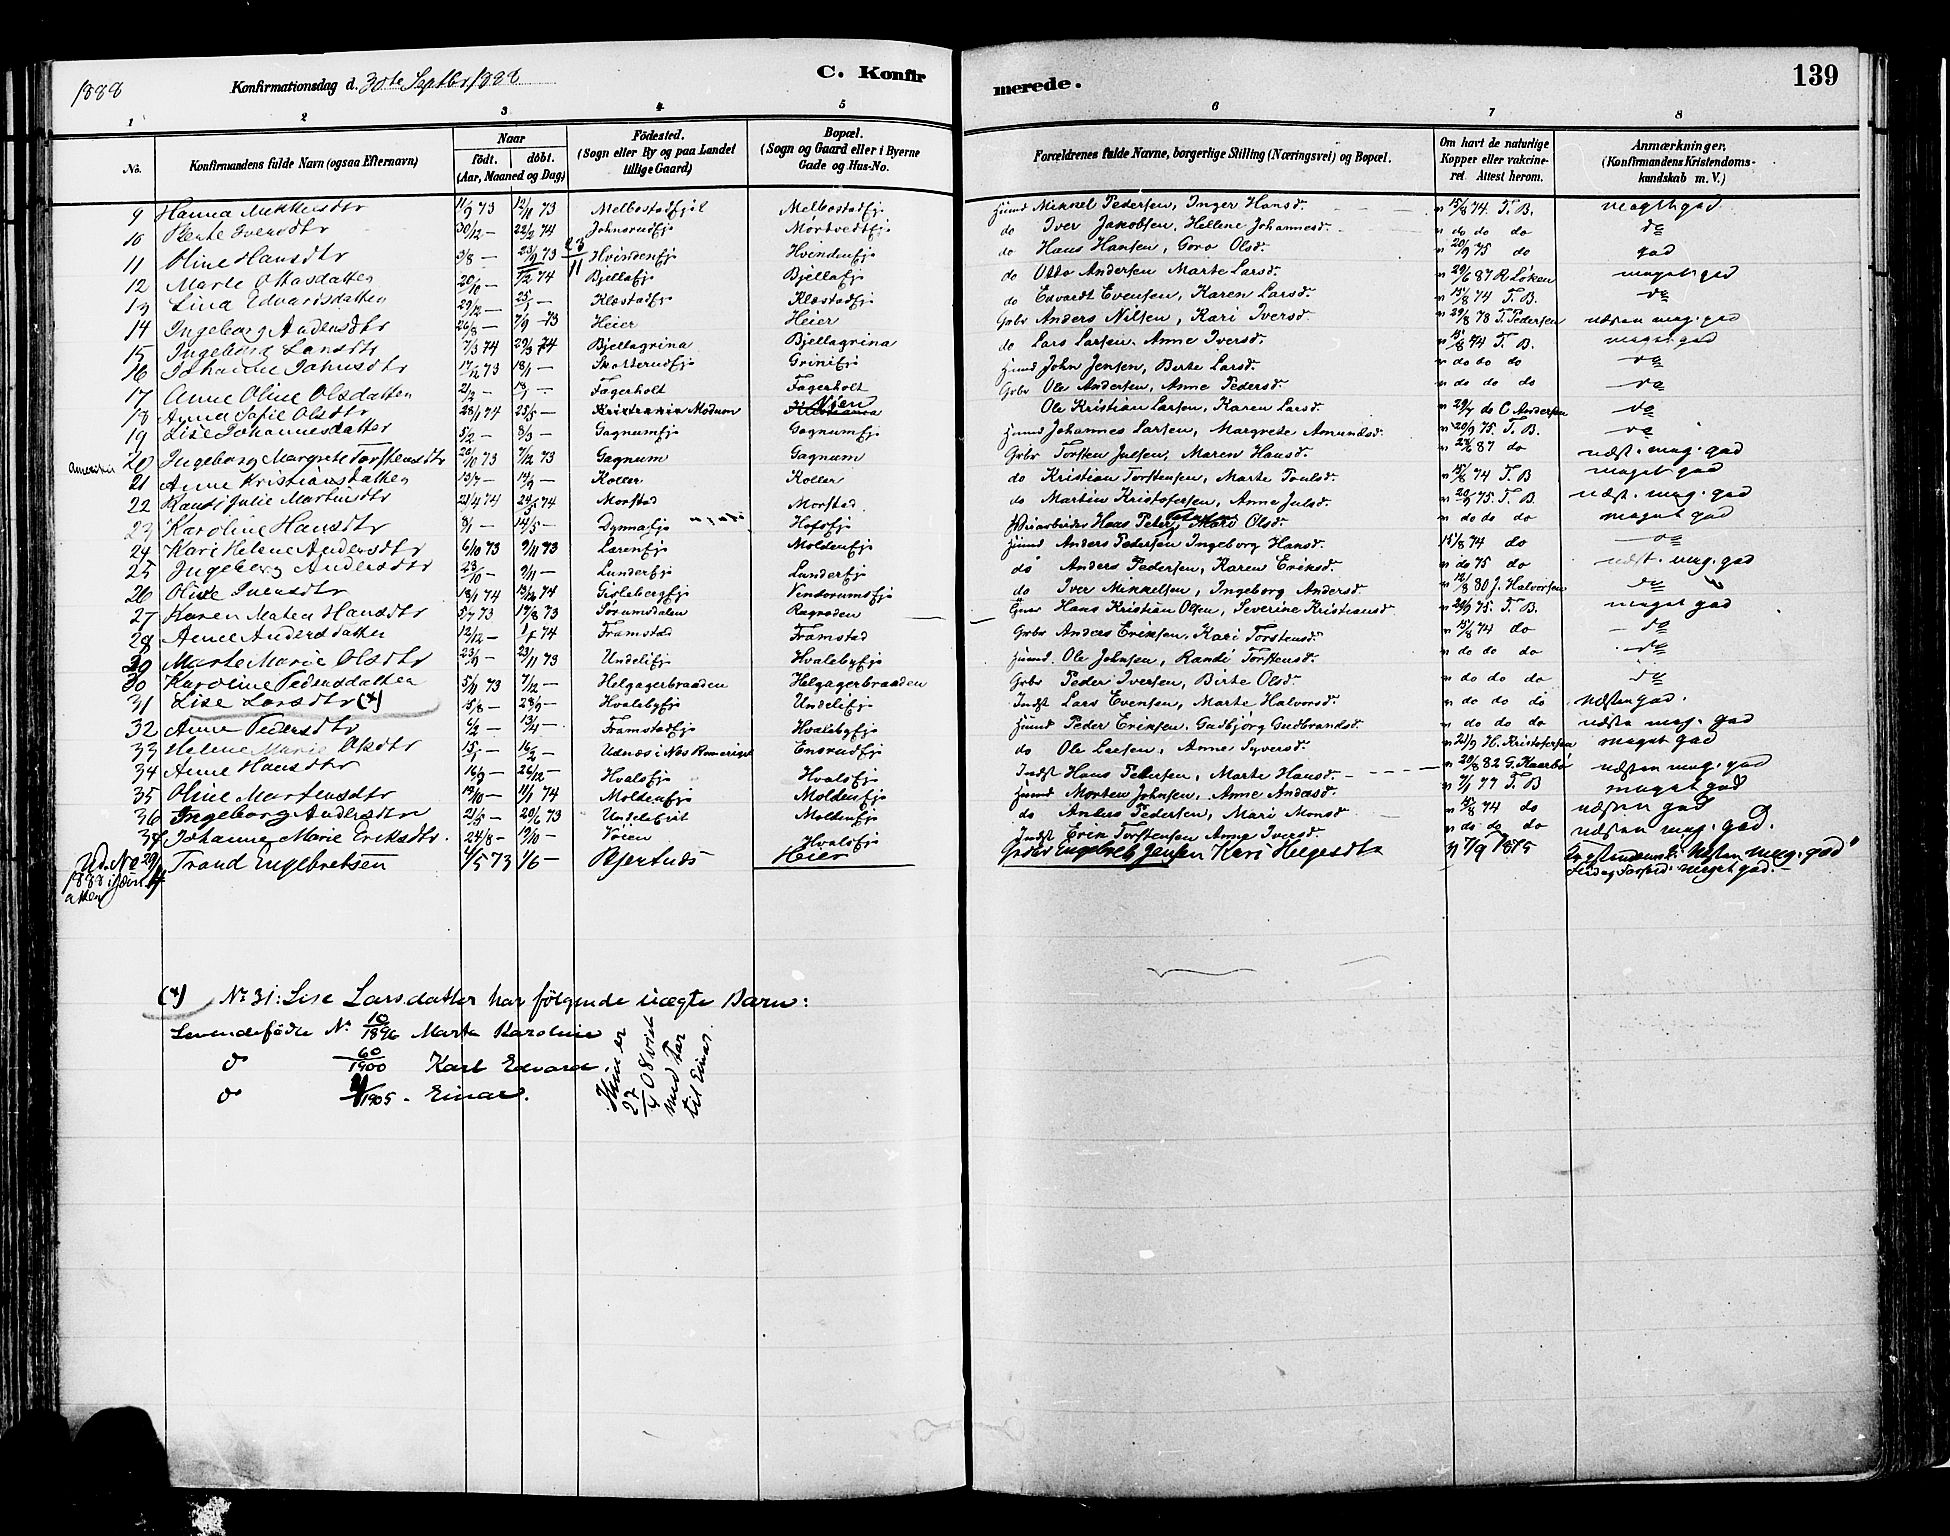 1888 Konfirmationsdag d. 30te Septbr 1888 C. Konfirmerede. 139
1 2 3 4 5 6 7 8
No. Konfirmandens fulde Navn (ogsaa Efternavn) Naar födt. döbt. (Aar, Maaned og Dag) Födested. (Sogn eller By og paa Landet tillige Gaard) Bopæl. (Sogn og Gaard eller i Byerne Gade og Hus-No. Forældrenes fulde Navne, borgerlige Stilling (Næringsvei) og Bopæl. Om havt de naturlige Kopper eller vakcineret. Attest herom. Anmærkninger, (Konfirmandens Kristendomskundskab m. V.)
9 Hanna Mikkelsdtr 11/9 73 12/11 73 Melbostadejet Melbostadeje Husmd Mikkel Pedersen, Inger Hansd. v 15/8 74. T. B. meget god
10 Bente Iversdtr 30/12 — 22/2 74 Johnsrudeje Mortvedteje do Iver Jakobsen, Hellene Johannesd. v do do do do
11 Oline Hansdtr 9/8 — 23/9 73 Hvindeneje Hvindeneje do Hans Hansen, Goro Olsd. v 20/9 75 do god
12 Marte Ottosdatter 20/10 — 1/2 74 Bjellaeje Bjellaeje do Otto Andersen Marte Larsd. v 29/6 87 R. Løken meget god
13 Lina Edvardsdatter 29/12 — Klæstadeje Klæstadeje do Edvardt Evensen, Karen Larsd. v 15/8 74 T. B. do
14 Ingeborg Andersdtr 26/8 — 7/9 73 Heier Heier Grbr Anders Nilsen, Kari Iversd. v 29/8 78 T. Pedersen næsten meg. god
15 Ingeborg Larsdtr 7/3 74 29/3 74 Bjellagrina Bjellagrina do Lars Larsen, Anne Iversd. v 15/8 74 T. B. meget god
16 Johanne Johnsdtr 17/12 73 18/1 — Skotterudeje Grinieje Husmd John Jensen, Birte Larsd. v do do do do
17 Anne Oline Olsdatter Fagerholt Fagerholt Grbr Ole Andersen, Anne Pedersd. v do do do do
18 Anna Sofie Olsdtr 28/1 74 25/5 — Kristiania Modum Kristiania Vien Ole Kristian Larsen, Karen Larsd. v 29/7 do C. Andersen do
19 Lise Johannesdatter 5/2 — 8/3 — Gagnumeje Gagnumeje Husmd Johannes Larsen, Margrete Amundsd. v 20/9 75. T. B. do
Amerika 20 Ingeborg Margrete Torstensdtr 26/10 73 7/12 73 Gagnum Gagnum Grbr Torsten Julsen, Maren Hansd. 87 do næst. meg. god
21 Anne Kristiansdatter 13/7 — 14/9 — Koller Koller do Kristian Torstensen, Marte Poulsd. v 15/8 74 T. B meget god
22 Randi Julie Martinsdtr 21/4 74 24/5 74 Morstad Morstad do Martin Kristofersen, Anne Julsd. v 20/9 75. T. B. næst. meg. god
23 Karoline Hansdtr 8/1 — 14/5 — Dynnaeje Hofseje Hans Peter Petersen Mari Olsd. v do do do meget god
24 Kari Helene Andersdtr 6/10 73 9/11 73 Læreneje Moldeneje Husmd Anders Pedersen Ingeborg Hansd. 15/8 74 do do
25 Ingeborg Andersdtr 23/10 — 9/11 — Lundereje Lundereje do Anders Pedersen, Karen Eriksd. v do 75 do næst. meg. god
26 Olise Iversdtr 18/1 74 74 Gislebergeje Vindorumseje do Iver Mikkelsen, Ingeborg Andersd. v 12/8 80 J. Halvorsen do
27 Karen Matea Hansdtr 5/7 73 17/8 73 Sørumsdalen Ragnoden Hans Kristian Olsen, Severine Kristiansd. v 20/9 75. T. B. meget god
28 Anne Andersdatter 12/12 — 74 Framstad Framstad Grbr Anders Eriksen, Kari Torstensd. v 15/8 74 do do
29 Marte Marie Olsdtr 23/9 — 23/11 73 Undelieje Hvalebyeje Husmd. Ole Johnsen, Randi Torstensd. v do do do do
30 Karoline Pedersdatter 5/11 73 7/12 — Helgagerbraaden Helgagerbraaden Grbr Peder Iversen, Birte Olsd. v do do do do
31 Lise Larsdtr (x) 15/8 — 28/9 — Hvalebyeje Undelieje Indst Lars Evensen, Marte Halvorsd. v do do do næsten god.
32 Anne Pedersdtr 6/2 — 13/4 — Framstadeje Hvalebyeje Husmd Peder Eriksen. Gudbjörg Gudbrandsd. v do do do næsten meg. god
33 Helene Marie Olsdtr Udnæs i Nes Romerige Ensrudeje do Ole Larsen, Anne Syversd. v 21/9 H. Kristofersen meget god
34 Anne Hansdtr 16/9 — 26/12 — Hvalseje Hvalseje Indst Hans Petersen, Marte Hansd. v 20/8 82 G. Kaarbø næsten meg. god
35 Oline Martensdtr 19/10 — 11/1 74 Moldeneje Moldeneje Husmd Morten Johnsen, Anne Andersd. v 7/1 77 T. B meget god
36 Ingeborg Andersdtr 21/5 — 29/6 73 Moldeneje do Anders Pedersen, Mari Monsd v 15/8 74 do næsten god
37 Johanne Marie Eriksdtr. 24/8 — 19/10 — Vøien Hvalseje Indst Erik Torstensen Anne Iversd. v do do do næsten meg. god.
Trond Engebretsen 4/5 73 1/6 — Bjertnæs Heier Grbr Engebret Jensen Kari Helgesdtr 7/9 1875 Næsten meg. god
meget god.
(x) No 31: Lise Larsdatter har følgende uægte Barn:
Levendefödte No 10/1896 Marte Karoline
do 60/1900 Karl Edvard
do /1905 – Einar.
Hun er 27/4 08 viet med Far til Einar.